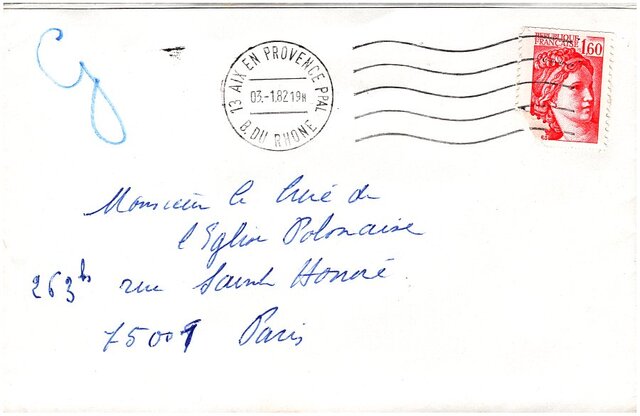 Cy
13 AIX EN PROVENCE PPAL
03.-1.82 19H
B. DU RHONE
REPUBLIQUE
FRANCAISE 1,60
Monsieur le Curé de
l'Eglise Polonaise
263 bis rue Saint Honoré
75001 Paris